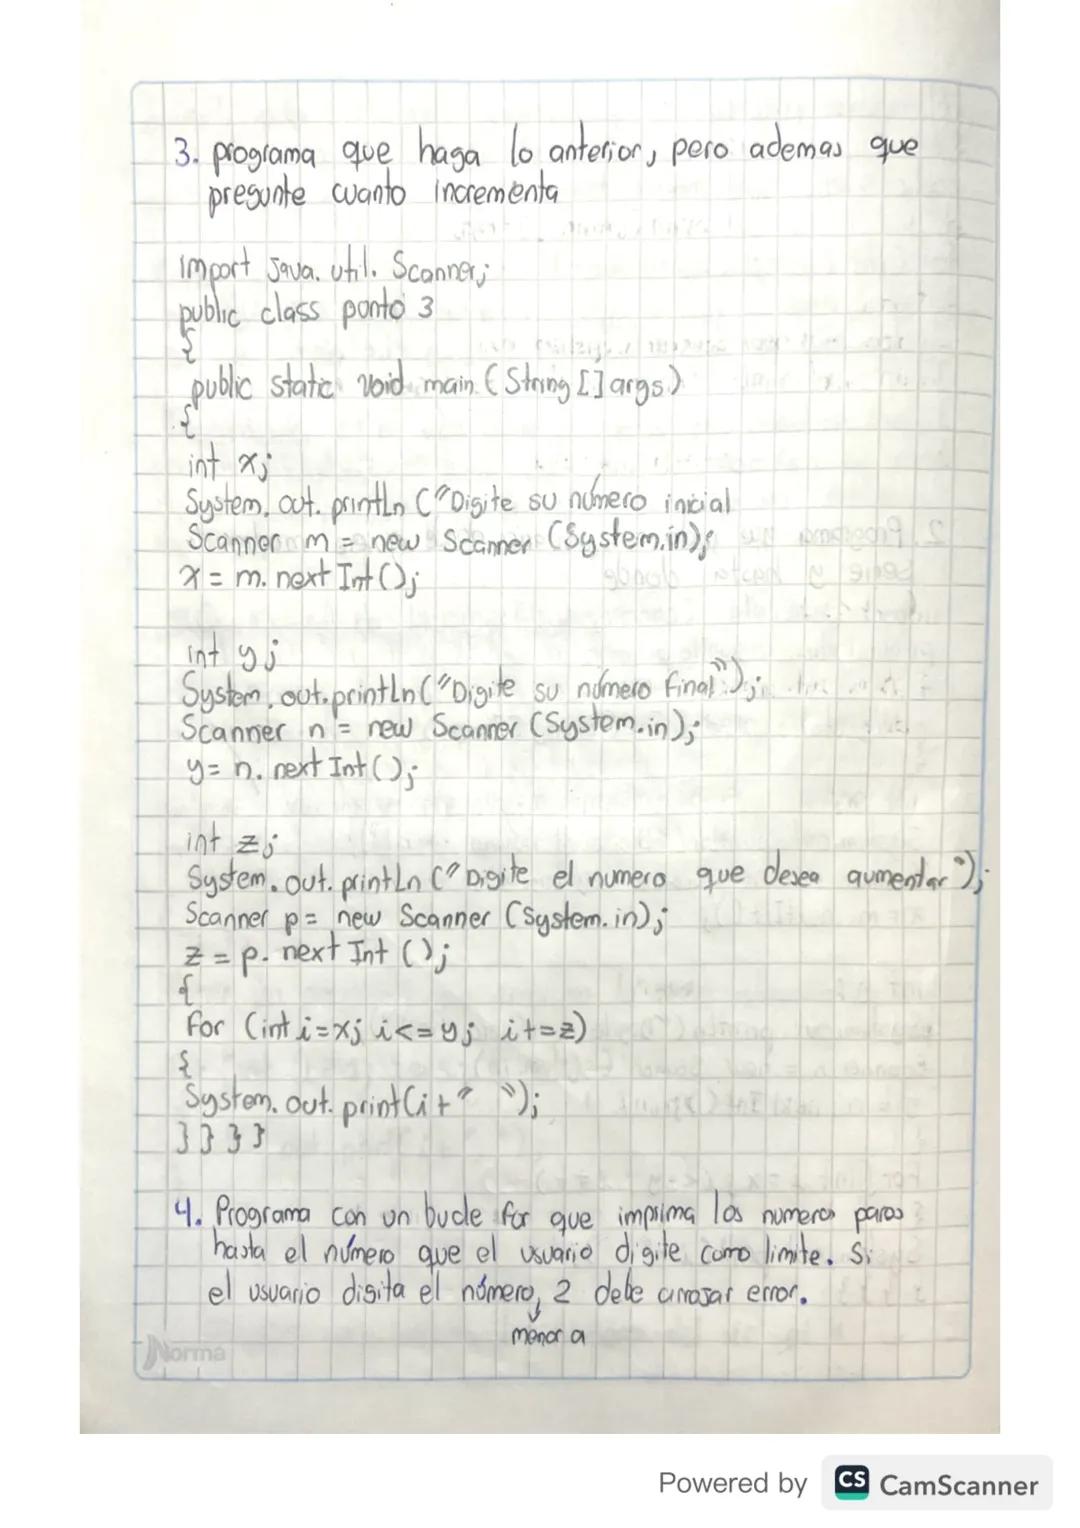 3. programa que haga lo anterior, pero ademas que
pregunte cuanto incrementa
import java.util.Scanner;
public class punto 3
{
public static void main (String [] args)
{
int x;
System.out.println ("Digite su número inicial
Scanner m = new Scanner (System.in);
x = m.next Int ();
int y;
System.out.println ("Digite su número final");
Scanner n = new Scanner (System.in);
y = n.next Int ();
int z;
System.out.println ("Digite el numero que desea aumentar");
Scanner p = new Scanner (System.in);
z = p.next Int ();
{
for (int i=x; i<=y; i+=z)
{
System.out.print(i+" ");
}}}}
4. Programa con un bucle for que imprima los numeros pares
hasta el número que el usuario digite como limite. Si
el usuario digita el número, 2 debe arrojar error.
menor a
Norma
Powered by CS CamScanner